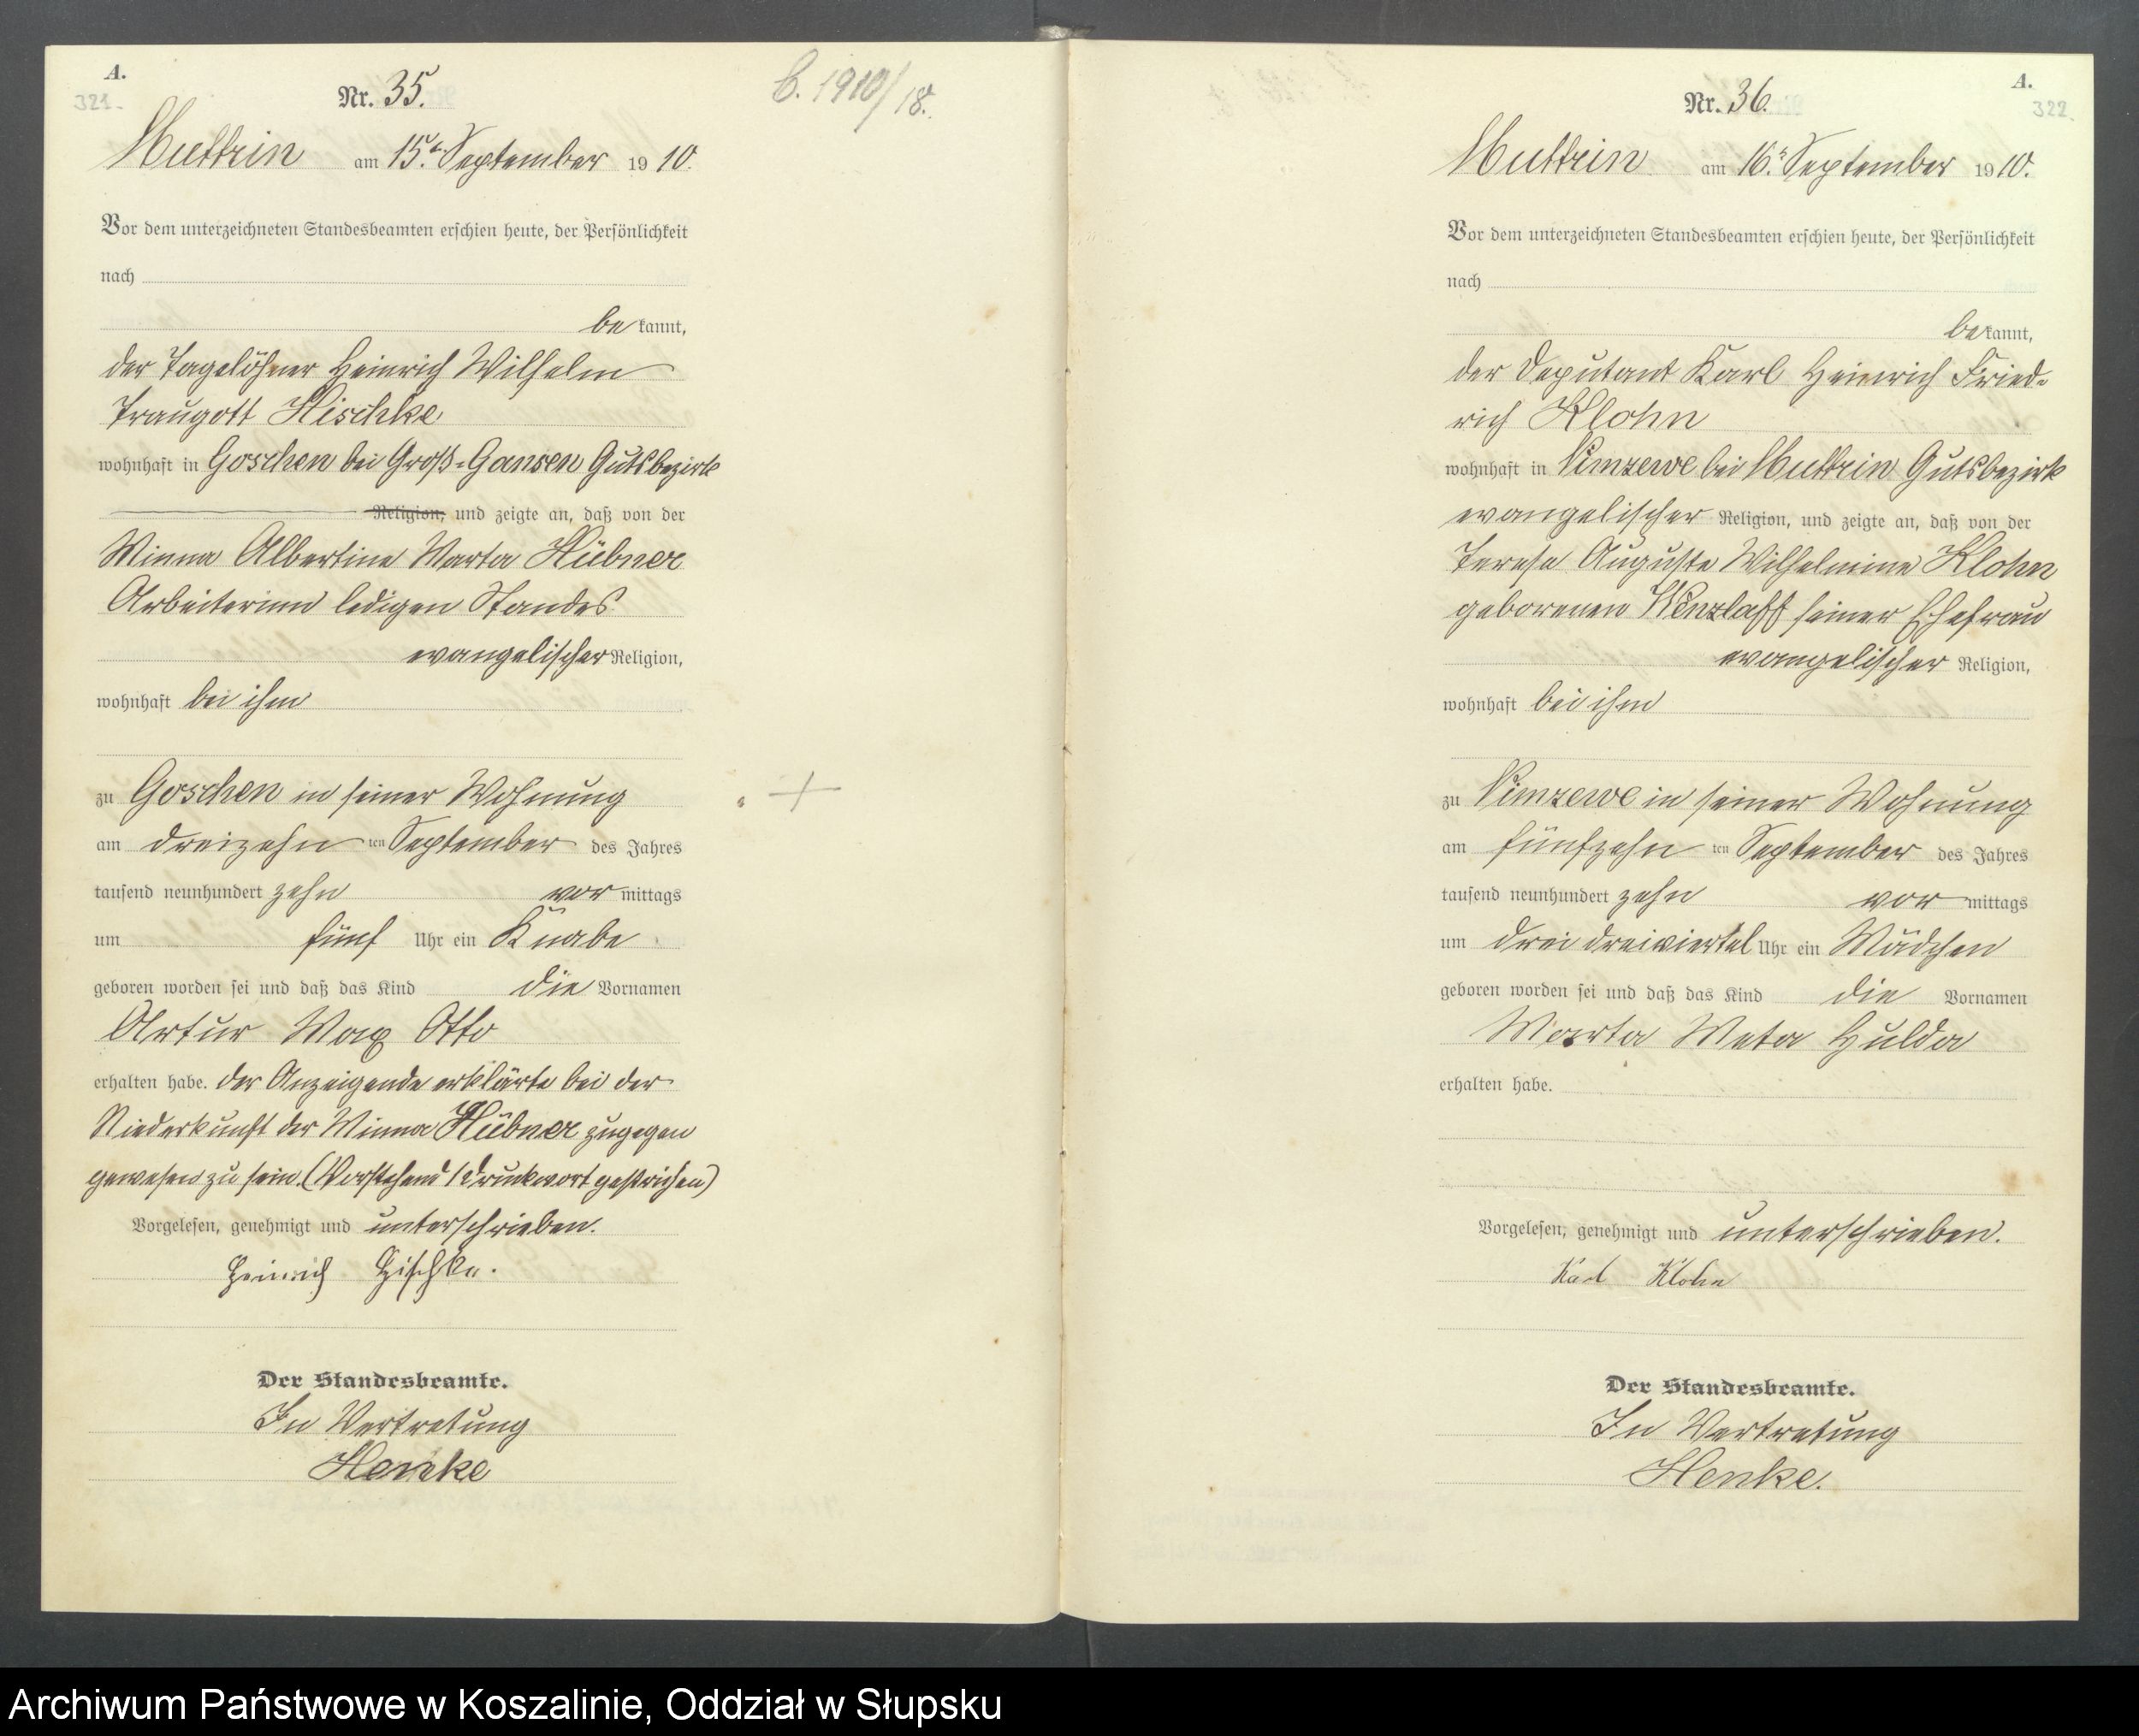 A.
321.
Nr. 35.
C. 1910/18.
Muttrin am 15. September 1910.
Vor dem unterzeichneten Standesbeamten erschien heute, der Persönlichkeit
nach
be kannt,
der Tagelöhner Heinrich Wilhelm
Traugott Hischke
wohnhaft in Goschen bei Groß-Gansen Gutsbezirk
Religion, und zeigte an, daß von der
Minna Albertine Marta Hübner
Arbeiterinn ledigen Standes
evangelischer Religion,
wohnhaft bei ihm
zu Goschen in seiner Wohnung
am dreizehn ten September des Jahres
tausend neunhundert zehn vor mittags
um fünf Uhr ein Knabe
geboren worden sei und daß das Kind die Vornamen
Artur Max Otto
erhalten habe. der Anzeigende erklärte bei der
Niederkunft der Minna Hübner zugegen
gewesen zu sein. (Vorstehend 1 Druckwort gestrichen)
Vorgelesen, genehmigt und unterschrieben.
Heinrich Hischke.
Der Standesbeamte.
In Vertretung
Henke
A.
322.
Nr. 36.
Muttrin am 16. September 1910.
Vor dem unterzeichneten Standesbeamten erschien heute, der Persönlichkeit
nach
be kannt,
der Deputant Karl Heinrich Fried-
rich Klohn
wohnhaft in Nimzewe bei Muttrin Gutsbezirk
evangelischer Religion, und zeigte an, daß von der
Terese Auguste Wilhelmine Klohn
geborenen Wenzlaff seiner Ehefrau
evangelischer Religion,
wohnhaft bei ihm
zu Nimzewe in seiner Wohnung
am fünfzehn ten September des Jahres
tausend neunhundert zehn vor mittags
um drei dreiviertel Uhr ein Mädchen
geboren worden sei und daß das Kind die Vornamen
Marta Meta Hulda
erhalten habe.
Vorgelesen, genehmigt und unterschrieben.
Karl Klohn
Der Standesbeamte.
In Vertretung
Henke.
Archiwum Państwowe w Koszalinie, Oddział w Słupsku